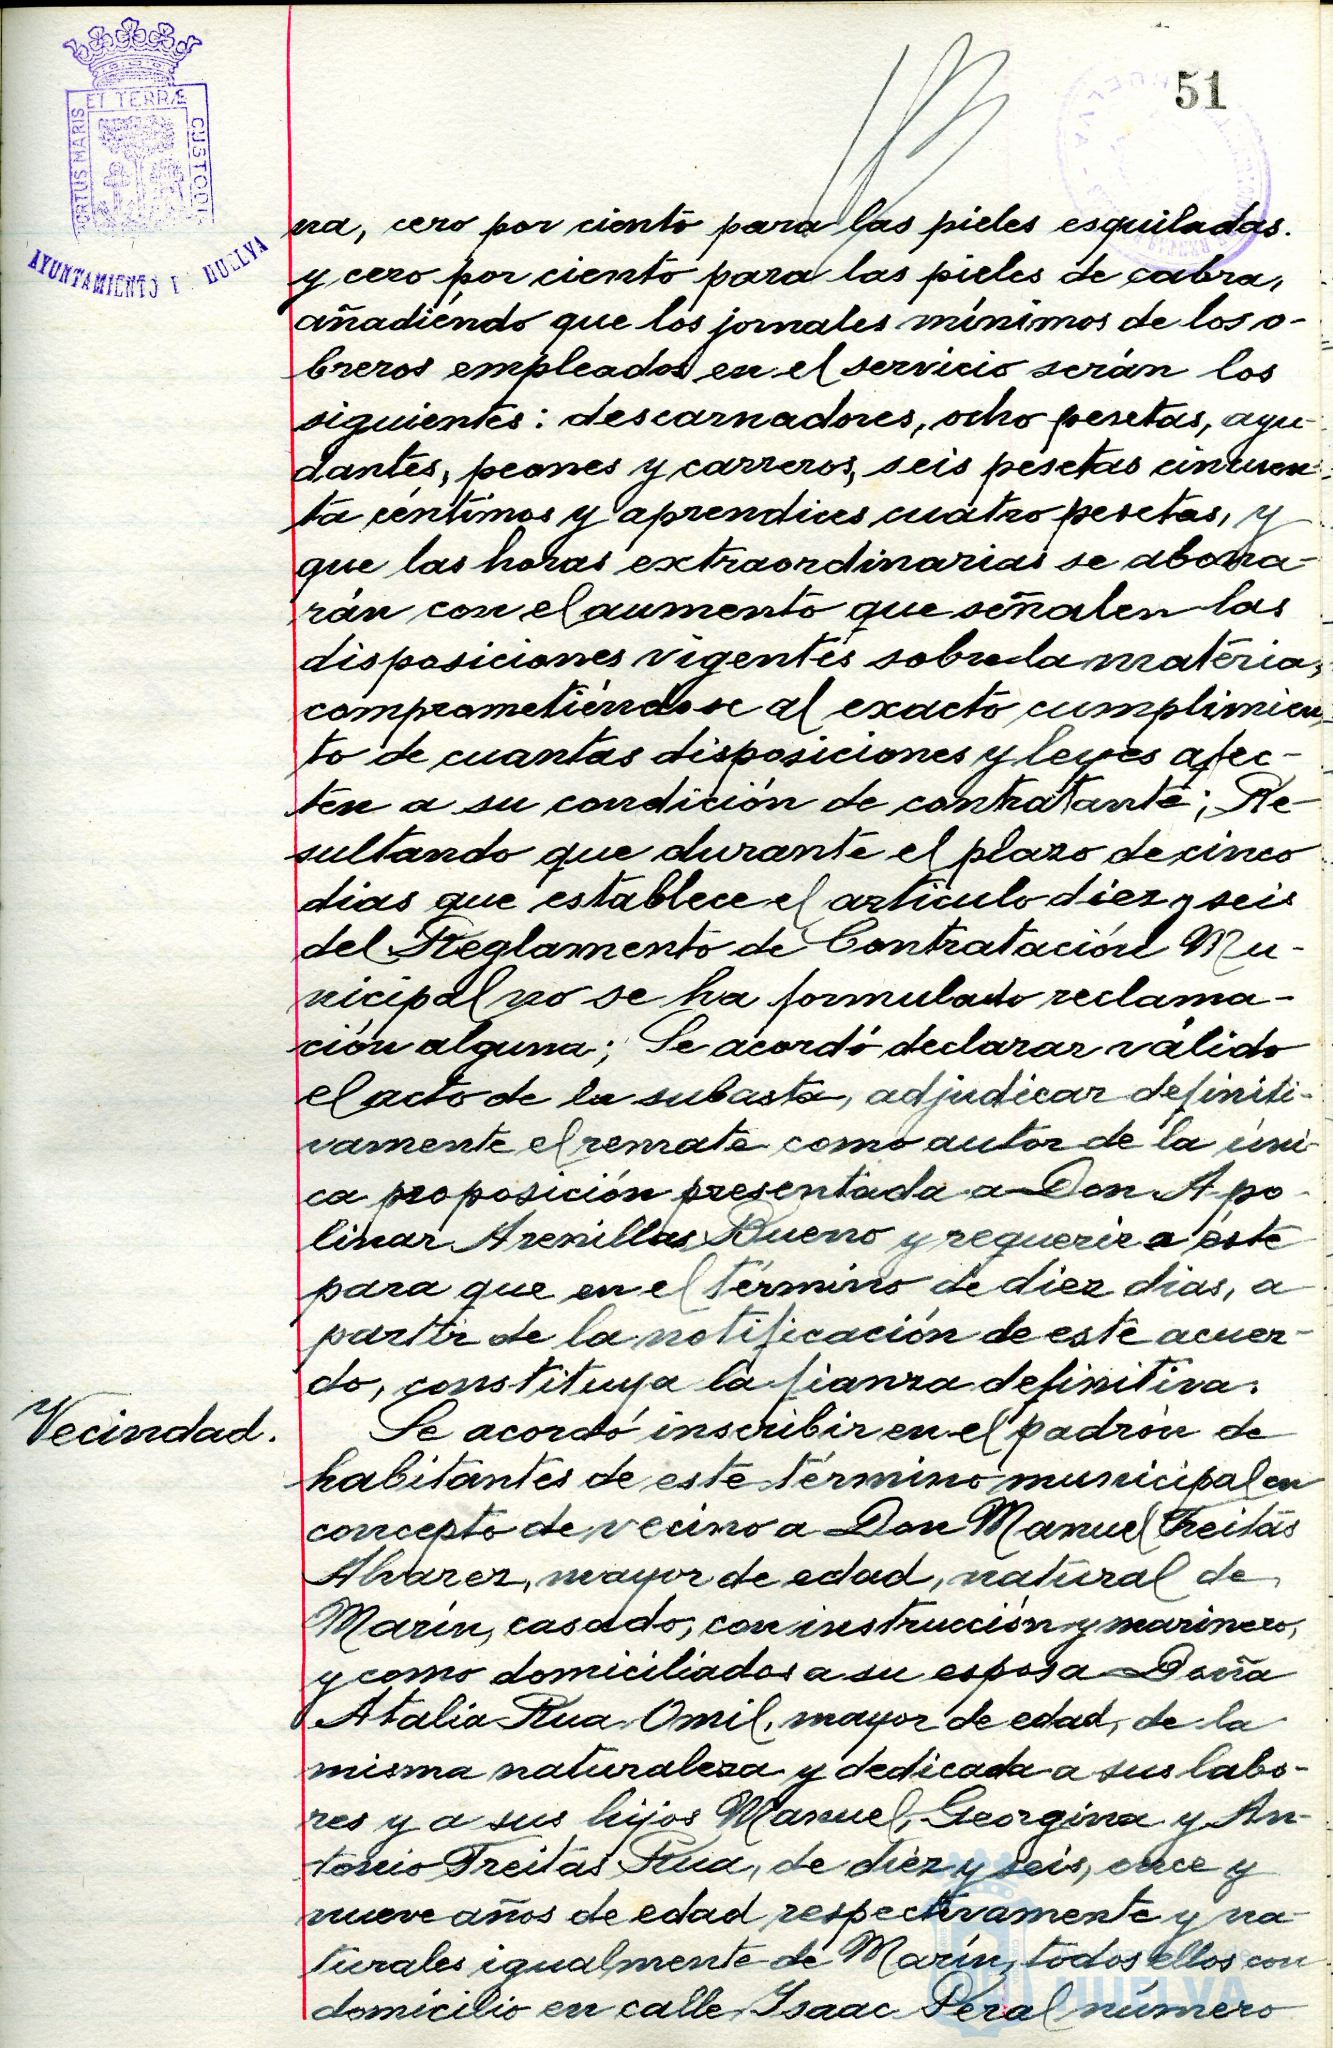 51
PORTUS MARIS ET TERRÆ CUSTODI
AYUNTAMIENTO DE HUELVA
na, cero por ciento para las pieles esquiladas.
y cero por ciento para las pieles de cabra,
añadiéndo que los jornales mínimos de los o-
breros empleados en el servicio serán los
siguientes: descarnadores, ocho pesetas, ayu-
dantes, peones y carreros, seis pesetas cincuen-
ta céntimos y aprendices cuatro pesetas, y
que las horas extraordinarias se abona-
rán con el aumento que señalen las
disposiciones vigentes sobre la materia,
comprometiéndose al exacto cumplimien-
to de cuantas disposiciones y leyes afec-
ten a su condición de contratante; Re-
sultando que durante el plazo de cinco
dias que establece el artículo diez y seis
del Reglamento de Contratación Mu-
nicipal no se ha formulado reclama-
ción alguna; Se acordó declarar válido
el acto de la subasta, adjudicar definiti-
vamente el remate como autor de la úni-
ca proposición presentada a Don Apo-
linar Arenillas Bueno y requerir a éste
para que en el término de diez dias, a
partir de la notificación de este acuer-
do, constituya la fianza definitiva.
Vecindad.
Se acordó inscribir en el padrón de
habitantes de este término municipal en
concepto de vecino a Don Manuel Freitas
Alvarez, mayor de edad, natural de
Marín, casado, con instrucción y marinero,
y como domiciliados a su esposa Doña
Atalia Rua Omil, mayor de edad, de la
misma naturaleza y dedicada a sus labo-
res y a sus hijos Manuel, Georgina y An-
tonio Freitas Rua, de diez y seis, once y
nueve años de edad respectivamente y na-
turales igualmente de Marín, todos ellos con
domicilio en calle Isaac Peral número
HUELVA